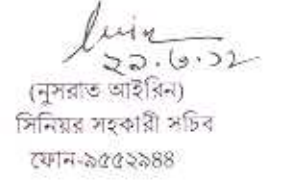 ২৯.৩.১২
(নুসরাত আইরিন)
সিনিয়র সহকারী সচিব
ফোন-৯৫৫২৯৪৪